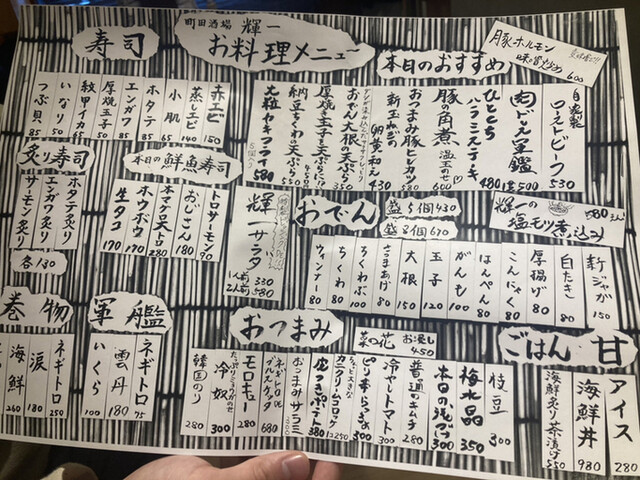 町田酒場 輝一
お料理メニュー
寿司
赤エビ 150
蒸しエビ 140
小肌 85
ホタテ 85
エンガワ 85
厚焼玉子 50
紋甲イカ 65
いなり 50
つぶ貝 85
炙り寿司
ホタテ炙り
エンガワ炙り
サーモン炙り
各130
本日の鮮魚寿司
トロサーモン 90
おじさん 180
本マグロ大トロ 280
ホウボウ 170
生タコ 170
本日のおすすめ
自家製
ローストビーフ 530
肉どぇ軍艦 1貫500
ひとくちハラミステーキ 480
豚の角煮 温玉のせ 660
おつまみ豚ヒレカツ
新玉ねぎの卵黄和え 430
おでん大根の天ぷら 350
厚焼き玉子と天ぷら
納豆ちくわの天ぷら
大粒カキフライ 580
豚ホルモン
味噌炒め 600
輝一の
塩モツ煮込み
580
輝一サラダ
1人前 330
2人前 580
おでん
盛5個430
盛8個670
新ジャガ 150
白たき 80
厚揚げ 80
こんにゃく 80
はんぺん 80
がんも 100
玉子 120
大根 150
さつまあげ 80
ちくわぶ 100
ちくわ 80
ウィンナー 80
巻物
ネギトロ 250
涙 180
海鮮 260
軍艦
ネギトロ 75
雲丹 180
いくら 100
おつまみ
菜の花 お浸し 450
枝豆 300
梅水晶 350
本日の浅づけ 300
普通のキムチ 280
冷やしトマト 300
ピリ辛らっきょ 300
カニクリームコロッケ 1コ290
皮つきポテト 380
おつまみサラミ
モロキュー 280
冷奴 300
韓国のり 280
ごはん 甘
アイス 280
海鮮丼 980
海鮮炙り茶漬け 550